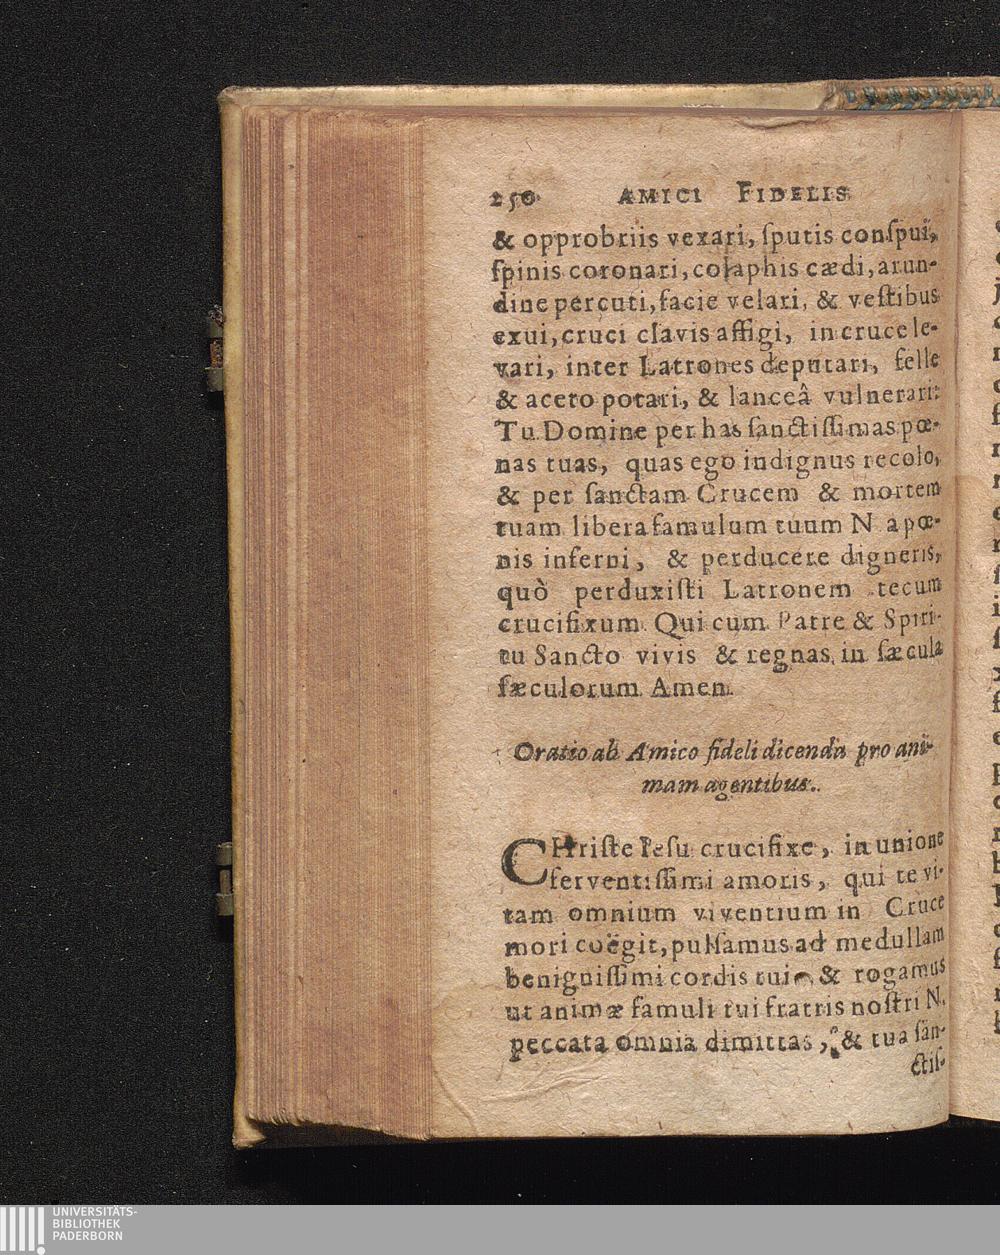 250 AMICI FIDELIS
& opprobriis vexari, ſputis conſpui,
ſpinis coronari, colaphis cædi, arun-
dine percuti, facie velari, & veſtibus
exui, cruci clavis affigi, in cruce le-
vari, inter Latrones deputari, felle
& aceto potari, & lanceâ vulnerari:
Tu Domine per has ſanctiſſimas pœ-
nas tuas, quas ego indignus recolo,
& per ſanctam Crucem & mortem
tuam libera famulum tuum N a pœ-
nis inferni, & perducere digneris,
quò perduxiſti Latronem tecum
crucifixum. Qui cum Patre & Spiri-
tu Sancto vivis & regnas, in ſæcula
ſæculorum. Amen.
Oratio ab Amico fideli dicenda pro ani-
mam agentibus.
CHriſte Ieſu crucifixe, in unione
ferventiſſimi amoris, qui te vi-
tam omnium viventium in Cruce
mori coëgit, pulſamus ad medullam
benigniſſimi cordis tui, & rogamus
ut animæ famuli tui fratris noſtri N.
peccata omnia dimittas, & tua ſan-
ctiſ-
UNIVERSITÄTS-
BIBLIOTHEK
PADERBORN